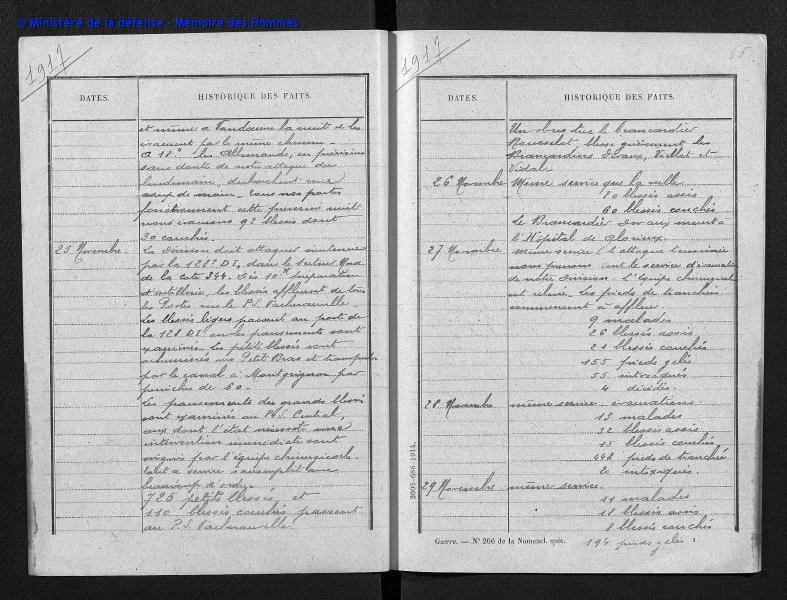 © Ministère de la défense - Mémoire des Hommes
1917
DATES.
HISTORIQUE DES FAITS.
et même a Vandœuvre la nuit de les
évacuent par le même chemin
A 18h les Allemands, en prévision
sans doute de notre attaque du
lendemain, déclanchent une
coup de main. Tous nos postes
fonctionnent cette première nuit
nous évacuons 92 blessés dont
30 couchés.
25 Novembre.
La Division doit attaquer soutenue
par la 128e DI, dans le secteur Nord
de la cote 344. Dès 10h préparation
d'artillerie, les blessés affluent de tous
les Postes vers le P.S. Vacherauville.
Les blessés légers passent au poste de
la 128 DI ou les pansements sont
examinés. Les petits blessés sont
acheminés au Petit Bras et transportés
par le canal à Montgrignon par
péniches de 60.
Les pansements des grands blessés
sont examinés au P.S. Central,
ceux dont l'état nécessite une
intervention immédiate sont
soignés par l'équipe chirurgicale.
Tout ce service s'accomplit avec
beaucoup d'ordre.
725 petits blessés, et
110 blessés couchés passent
au P.S. Vacherauville.
1917
65
DATES.
HISTORIQUE DES FAITS.
Un obus tue le brancardier
Rousselot blesse grièvement les
Brancardiers Viollet et
Vidal.
26 Novembre
Même service que la veille
80 blessés assis
60 blessés couchés
Le Brancardier meurt à
l'Hôpital de Glorieux
27 Novembre
Même service (l'attaque terminée
nous prenons le service d'évacuation
de notre division. L'équipe chirurgicale
est relevée. Les pieds de tranchées
commencent à affluer.
9 malades
26 blessés assis
21 blessés couchés
155 pieds gelés
55 intoxiqués
4 décédés.
28 Novembre
même service évacuations.
13 malades
32 blessés assis
15 blessés couchés
442 pieds de tranchée
20 intoxiqués
29 Novembre
même service.
11 malades
18 blessés assis
8 blessés couchés
194 pieds gelés
2005-686-1914.
Guerre. — N° 266 de la Nomencl. spéc.
1